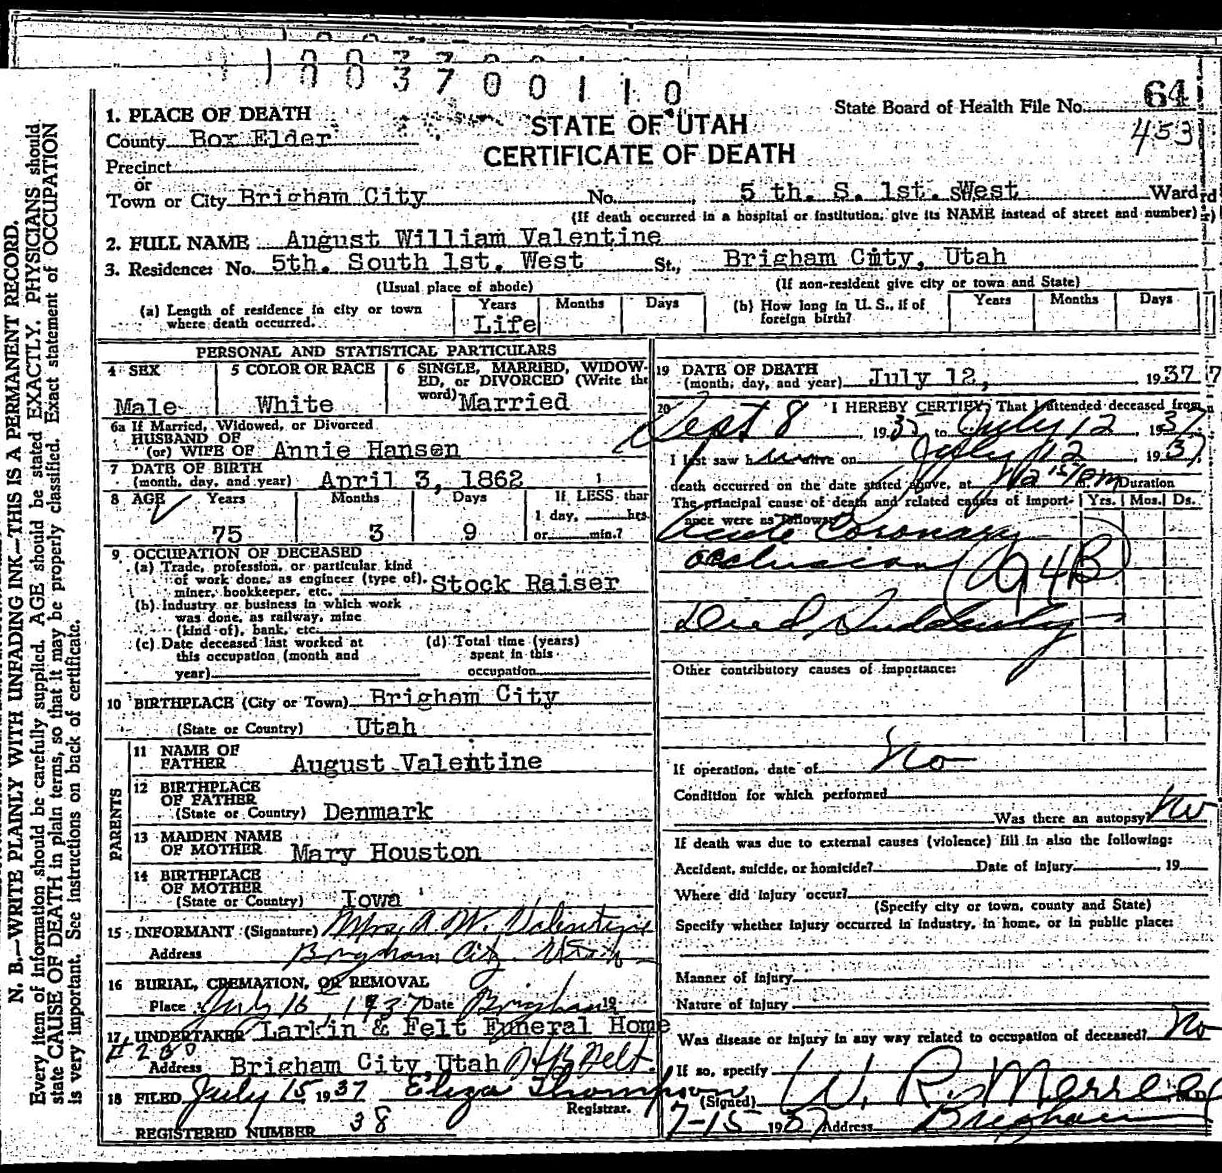 1003700110
State Board of Health File No. 64
453
STATE OF UTAH
CERTIFICATE OF DEATH
1. PLACE OF DEATH
County Box Elder
Precinct
or
Town or City Brigham City No. 5 th. S. 1st. sWest Ward
(If death occurred in a hospital or institution, give its NAME instead of street and number)
2. FULL NAME August William Valentine
3. Residence: No. 5th. South 1st. West St., Brigham City, Utah
(Usual place of abode) (If non-resident give city or town and State)
(a) Length of residence in city or town where death occurred. Years Months Days
Life
(b) How long in U. S., if of foreign birth? Years Months Days
PERSONAL AND STATISTICAL PARTICULARS
4 SEX 5 COLOR OR RACE 6 SINGLE, MARRIED, WIDOW-
ED, or DIVORCED (Write the
word) Married
Male White
6a If Married, Widowed, or Divorced
HUSBAND OF
(or) WIFE OF Annie Hansen
7 DATE OF BIRTH
(month, day, and year) April 3, 1862
8 AGE Years Months Days If LESS than
1 day, hrs.
75 3 9 or min.?
9 OCCUPATION OF DECEASED
(a) Trade, profession, or particular kind
of work done, as engineer (type of),
miner, bookkeeper, etc. Stock Raiser
(b) Industry or business in which work
was done, as railway, mine
(kind of), bank, etc.
(c) Date deceased last worked at
this occupation (month and
year)
(d) Total time (years)
spent in this
occupation
10 BIRTHPLACE (City or Town) Brigham City
(State or Country) Utah
PARENTS
11 NAME OF
FATHER August Valentine
12 BIRTHPLACE
OF FATHER
(State or Country) Denmark
13 MAIDEN NAME
OF MOTHER Mary Houston
14 BIRTHPLACE
OF MOTHER
(State or Country) Iowa
15 INFORMANT (Signature) Mrs. A. W. Valentine
Address Brigham City Utah
16 BURIAL, CREMATION, OR REMOVAL
Place July 16, 1937 Date Brigham 19
17 UNDERTAKER Larkin & Felt Funeral Home
# 200
Address Brigham City, Utah Felt.
18 FILED July 15 1937 Eliza Thompson
Registrar.
REGISTERED NUMBER 38
19 DATE OF DEATH
(month, day, and year) July 12, 1937
20 I HEREBY CERTIFY, That I attended deceased from
Sept 8, 1937 to July 12, 1937
I last saw him alive on July 12, 1937
death occurred on the date stated above, at m Duration
The principal cause of death and related causes of import-
ance were as follows: Yrs. Mos. Ds.
Acute Coronary
occlusion (94B)
Died Suddenly
Other contributory causes of importance:
If operation, date of No
Condition for which performed
Was there an autopsy No
If death was due to external causes (violence) fill in also the following:
Accident, suicide, or homicide? Date of injury , 19
Where did injury occur?
(Specify city or town, county and State)
Specify whether injury occurred in industry, in home, or in public place:
Manner of injury
Nature of injury
Was disease or injury in any way related to occupation of deceased? No
If so, specify
(Signed) W. R. Merrell
7-15 1937 Address Brigham
N. B.—WRITE PLAINLY WITH UNFADING INK—THIS IS A PERMANENT RECORD.
Every item of information should be carefully supplied. AGE should be stated EXACTLY. PHYSICIANS should
state CAUSE OF DEATH in plain terms, so that it may be properly classified. Exact statement of OCCUPATION
is very important. See instructions on back of certificate.